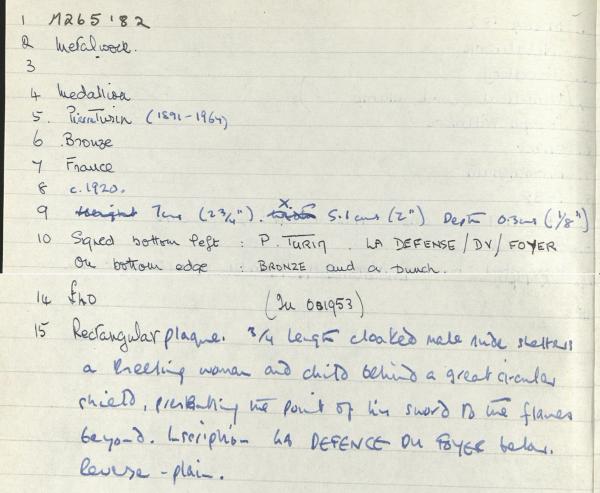 1 M265'82
2 Metalwork.
3
4 Medallion
5. Pierre Turin (1891-1964)
6 Bronze
7 France
8 c.1920.
9 Height 7cms (2 3/4"). x Width 5.1 cms (2") Depth 0.3cms (1/8")
10 Signed bottom left : P. TURIN . LA DEFENSE/DV/FOYER
On bottom edge : BRONZE and a punch.
14 £40 (In 001953)
15 Rectangular plaque. 3/4 length cloaked male nude shelters
a kneeling woman and child behind a great circular
shield, presenting the point of his sword to the flames
beyond. Inscription LA DEFENCE DU FOYER below.
Reverse - plain.